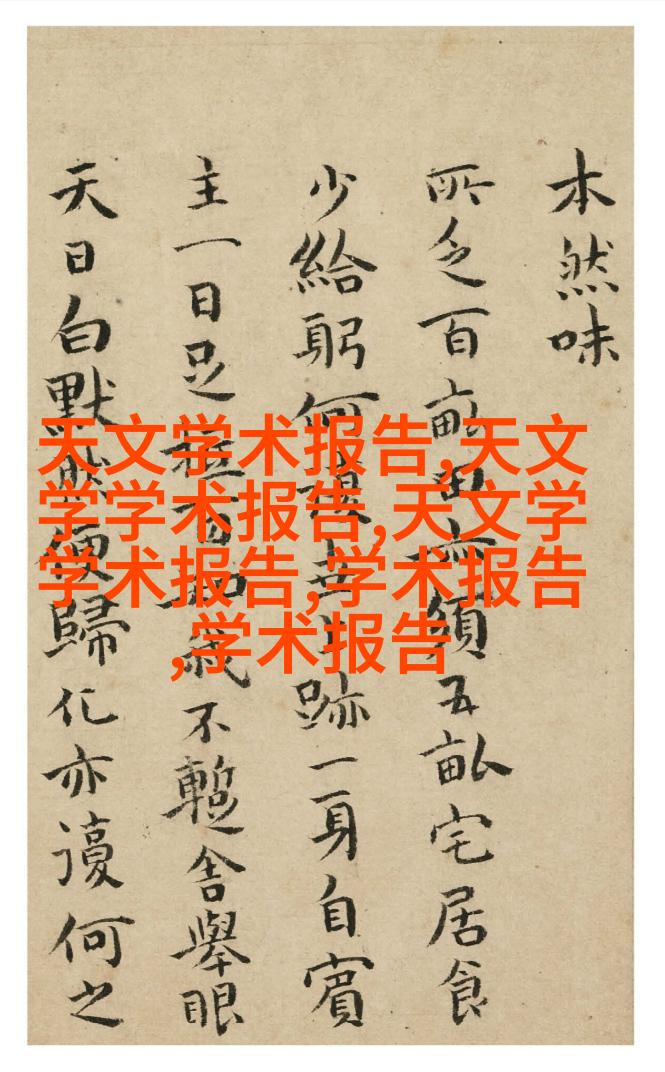 本然味
所乏百畝田須五畝宅居食
少給躬何世上跡一身自賓
主一日足百劫不暫舍舉眼
天日白默然便歸化亦謾何之
天文学术报告,天文
学学术报告,天文学
学术报告,学术报告
,学术报告